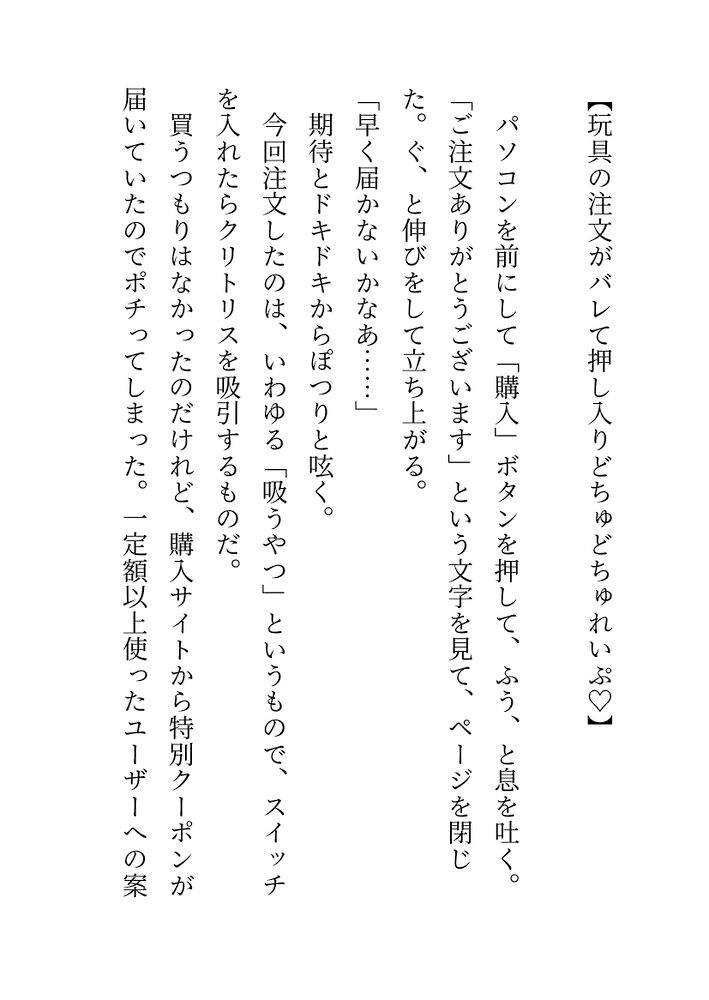 【玩具の注文がバレて押し入りどちゅどちゅれいぷ♡】
パソコンを前にして「購入」ボタンを押して、ふう、と息を吐く。
「ご注文ありがとうございます」という文字を見て、ページを閉じ
た。ぐ、と伸びをして立ち上がる。
「早く届かないかなあ……」
期待とドキドキからぽつりと呟く。
今回注文したのは、いわゆる「吸うやつ」というもので、スイッチ
を入れたらクリトリスを吸引するものだ。
買うつもりはなかったのだけれど、購入サイトから特別クーポンが
届いていたのでポチってしまった。一定額以上使ったユーザーへの案